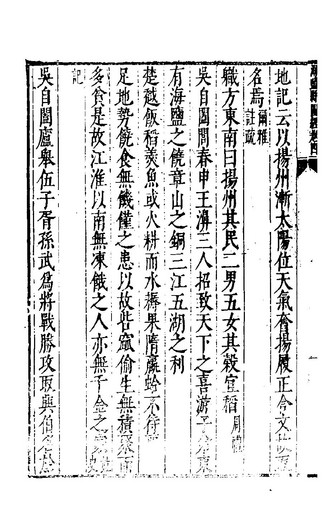 地記云以揚州漸太陽位天氣奮揚履正含文故取
名焉爾雅註疏
職方東南曰揚州其民二男五女其穀宜稻周禮
吳自闔閭春申王濞三人招致天下之喜游子弟東
有海鹽之饒章山之銅三江五湖之利
楚越飯稻羮魚或火耕而水耨果隋蠃蛤不待賈而
足地勢饒食無饑饉之患以故呰窳偷生無積聚而
多貧是故江淮以南無凍餓之人亦無千金之家史
記
吳自闔廬舉伍子胥孫武為將戰勝攻取興伯名於